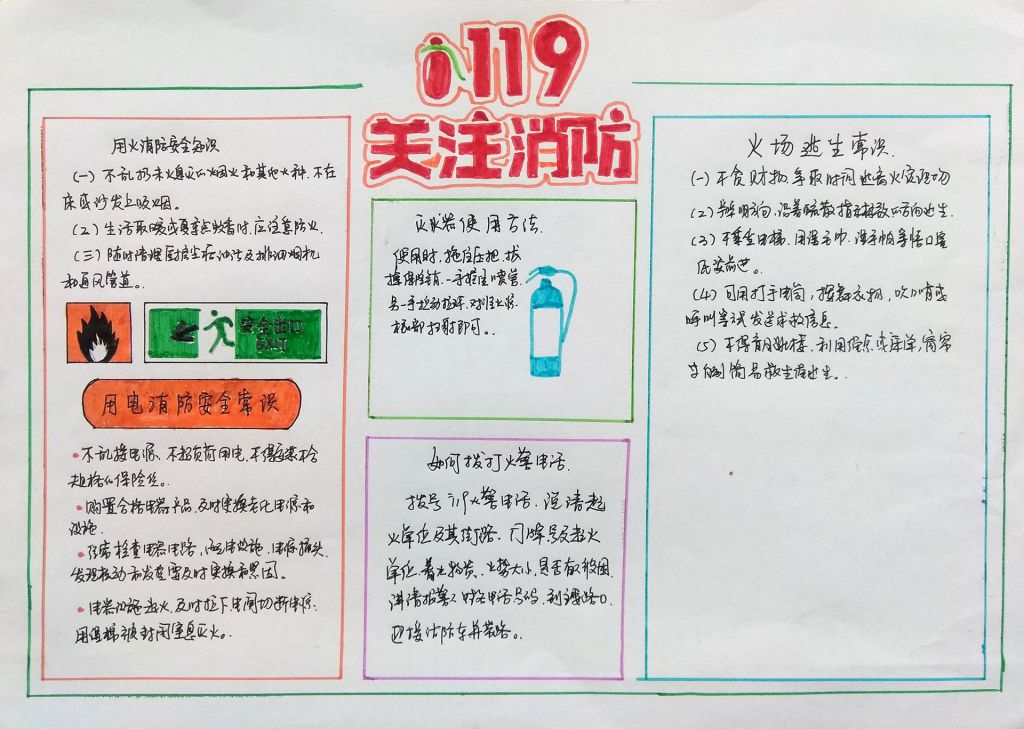 119
关注消防
用火消防安全知识
(一) 不乱扔未熄灭的烟火和其他火种.不在
床或沙发上吸烟。
(二) 生活取暖或夏季点蚊香时,应注意防火.
(三) 随时清理厨房里存油污及抽油烟机
和通风管道。
安全出口
EXIT
用电消防安全常识
不乱接电源、不超负荷用电,不得
保险丝。
购置合格电器产品,及时更换老化电源和
设施.
经常检查电器电路,配电设施,电源插头,
发现松动和发生 要及时更换和紧固。
电器设施起火,及时拉下电闸切断电源.
用湿棉被封闭窒息灭火。
灭火器使用方法
使用时,拖住压把,拔
掉保险销.一手握住喷管
另一手拉动拉环.对准火源
根部扫射即可。
如何拨打火警电话.
拨号119火警电话.说清起
火单位及其街路.门牌号及起火
单位.着火物质.火势大小,是否有被困
讲清报警人 电话号码,到 路口
迎接消防车并带路。
火场逃生常识.
(一) 不贪财物.争取时间逃离火灾现场
(2) 辨明方向.沿着疏散指示 方向逃生.
(3) 不乘坐电梯.用湿毛巾、湿手帕等捂口鼻
低姿前进。
(4) 可用打手电筒,挥舞衣物,吹哨或
呼叫等 发送求救信息。
(5) 不得盲目跳楼、利用 或床单,窗帘
简易救生 逃生.